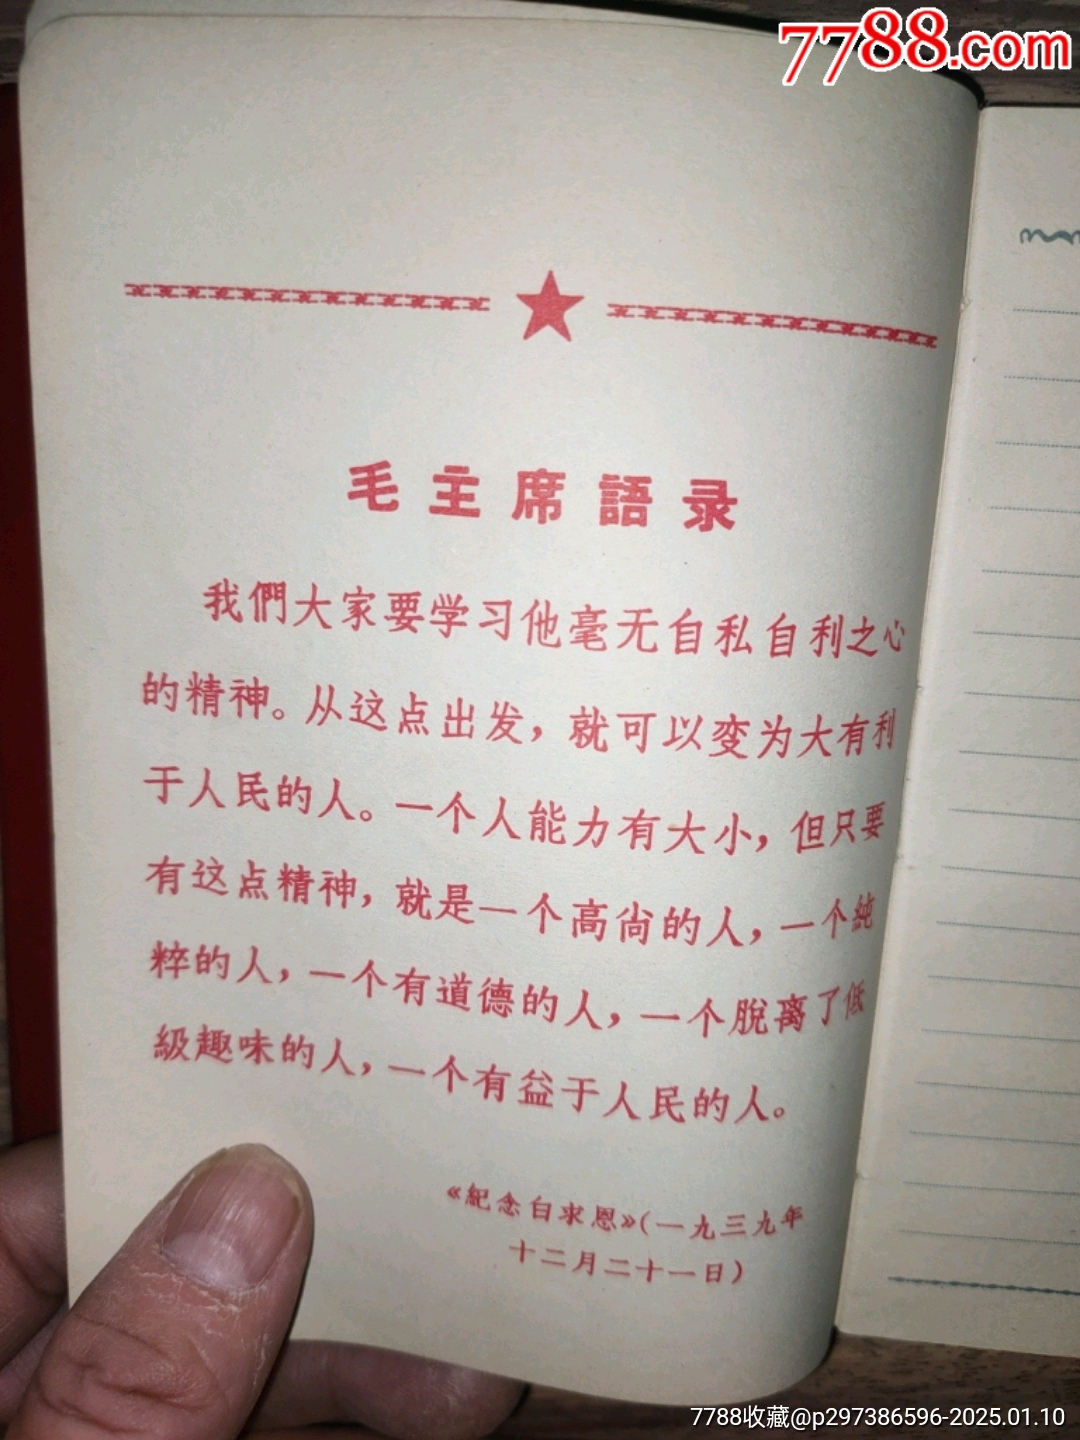 7788.com
毛主席語录
我們大家要学习他毫无自私自利之心
的精神。从这点出发，就可以变为大有利
于人民的人。一个人能力有大小，但只要
有这点精神，就是一个高尚的人，一个純
粹的人，一个有道德的人，一个脫离了低
級趣味的人，一个有益于人民的人。
《紀念白求恩》(一九三九年
十二月二十一日)
7788收藏@p297386596-2025.01.10